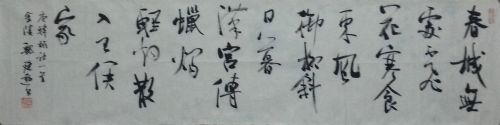 春城無
處不飛
花寒食
東風
御柳斜
日暮
漢宮傳
蠟燭
輕烟散
入五侯
家
唐韓翃詩一首